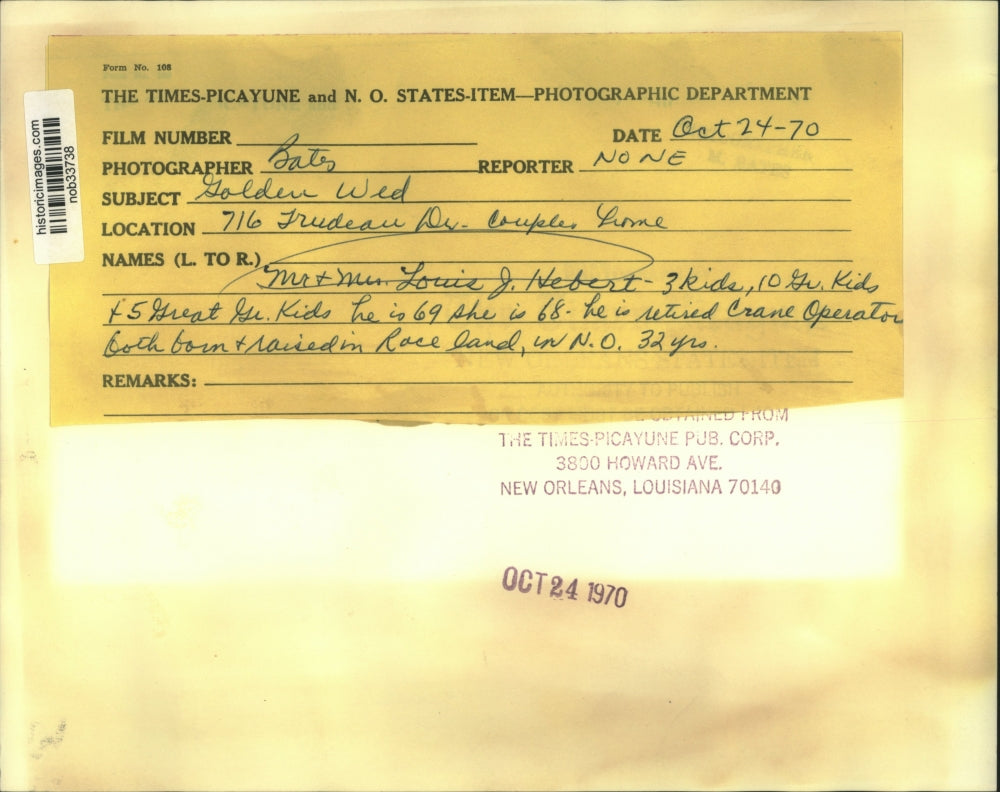 Form No. 108
THE TIMES-PICAYUNE and N. O. STATES-ITEM—PHOTOGRAPHIC DEPARTMENT
FILM NUMBER DATE Oct 24-70
PHOTOGRAPHER Bates REPORTER NONE
SUBJECT Golden Wed
LOCATION 716 Trudeau Dr. - Couples home
NAMES (L. TO R.)
Mr + Mrs. Louis J. Hebert - 3 kids, 10 Gr. Kids
+ 5 Great Gr. Kids he is 69 she is 68 - he is retired Crane Operator
both born + raised in Race land, in N.O. 32 yrs.
REMARKS:
historicimages.com
nob33738
OBTAINED FROM
THE TIMES-PICAYUNE PUB. CORP.
3800 HOWARD AVE.
NEW ORLEANS, LOUISIANA 70140
OCT 24 1970